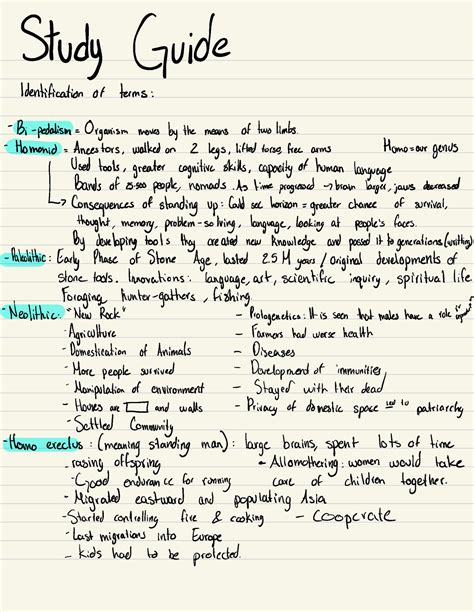 Study Guide
Identification of terms:
- Bi-pedalism = Organism moves by the means of two limbs.
- Homonid = Ancestors, walked on 2 legs, lifted torso, free arms Homo = our genus
Used tools, greater cognitive skills, capacity of human language
Bands of 25-500 people, nomads. As time progressed → brain larger, jaws decreased
→ Consequences of standing up: Could see horizon = greater chance of survival,
thought, memory, problem-solving, language, looking at people's faces.
By developing tools they created new knowledge and passed it to generations (writting)
- Paleolithic: Early Phase of Stone Age, lasted 2.5 M years / Original developments of
stone tools. Innovations: language, art, scientific inquiry, spiritual life
Foraging, hunter-gathers, fishing.
- Neolithic: "New Rock"
- Agriculture
- Domestication of Animals
- More people survived
- Manipulation of environment
- Houses are and walls
- Settled Community
- Protogenetics: It is seen that males have a role in
- Farmers had worse health
- Diseases
- Development of immunities
- Stayed with their dead
- Privacy of domestic space led to patriarchy
- Homo erectus: (meaning standing man): large brains, spent lots of time
- raising offspring
- Good endurance for running
- Allomothering: women would take
care of children together.
- Migrated eastward and populating Asia
- Started controlling fire & cooking
- cooperate
- Last migrations into Europe
- kids had to be protected.